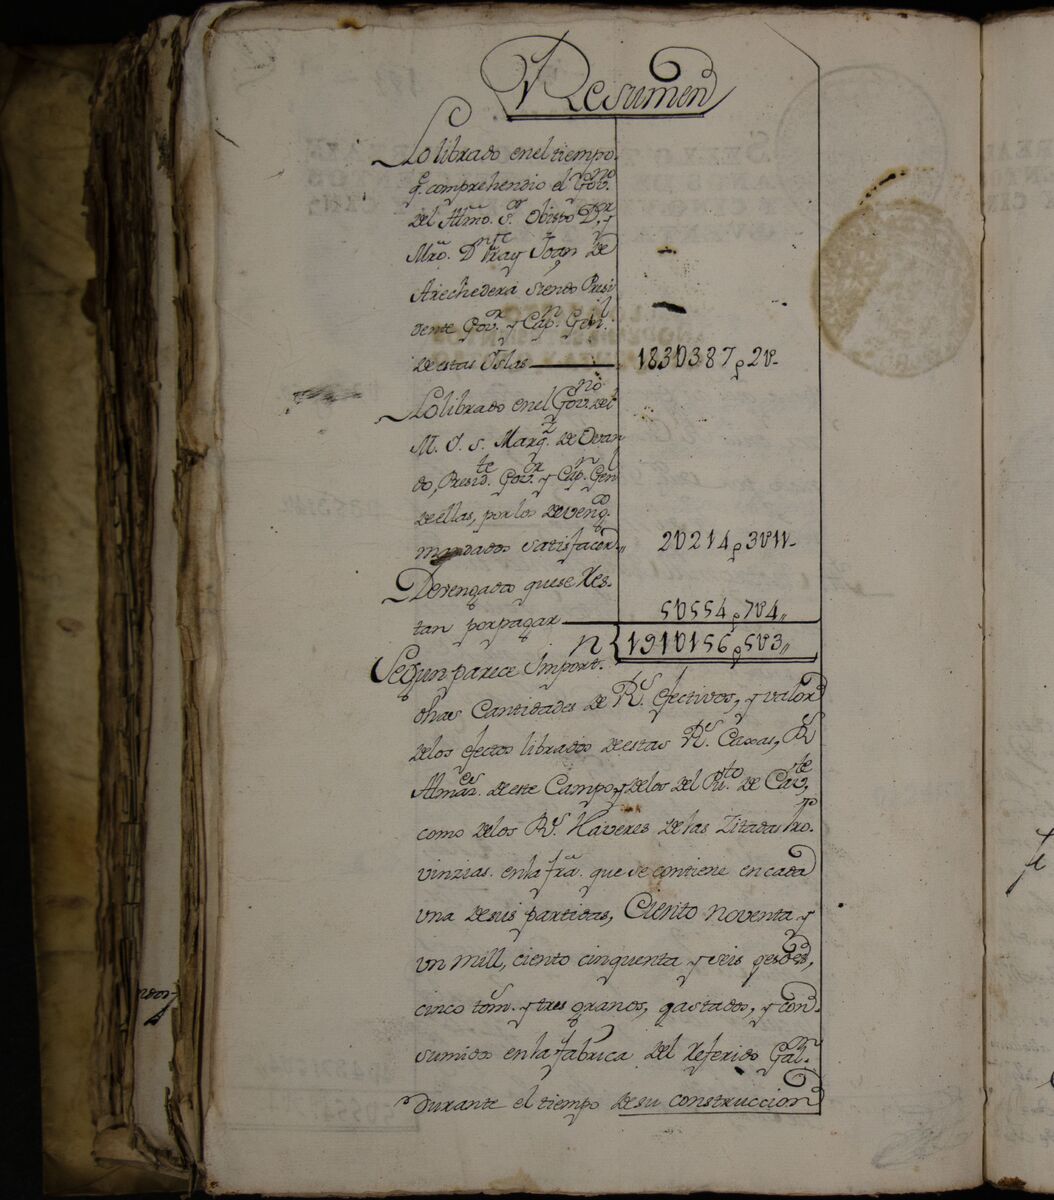 Resumen
Lo librado en el tiempo
q. comprehendio el Gov.no
del Illmo. S.or Obispo D.r y
Mro. D.n Fray Joan de
Arechedera siendo Presi
dente Gov.r y Cap.n Gen.l
de estas Islas 183U387 p 2 v
Lo librado en el Gov.no del
M. I. S. Marq.z de Ovan
do, Presid.te Gov.r y Cap.n Gen.l
de ellas, por los deveng.do
mandados satisfacer 2U214 p 3 v 11
Devengado que se Res-
tan por pagar 5U554 p 7 v 4
191U156 p 5 v 3
Segun parece Import.n
dhas Cantidades de R.s efectivos, y valor
delos efectos librados de estas R.s Caxas, R.s
Almaz.es de este Campo y delos del Pu.to de Cav.te
como delos R.s Haveres de las Zitadas Pro-
vinzias. en la fra. que se contiene en cada
una de sus partidas, Ciento noventa y
un mill, ciento cinquenta y seis pesos,
cinco tom.s y tres granos, gastados, y con-
sumidos en la fabrica del Referido Gal.n
Durante el tiempo de su construccion